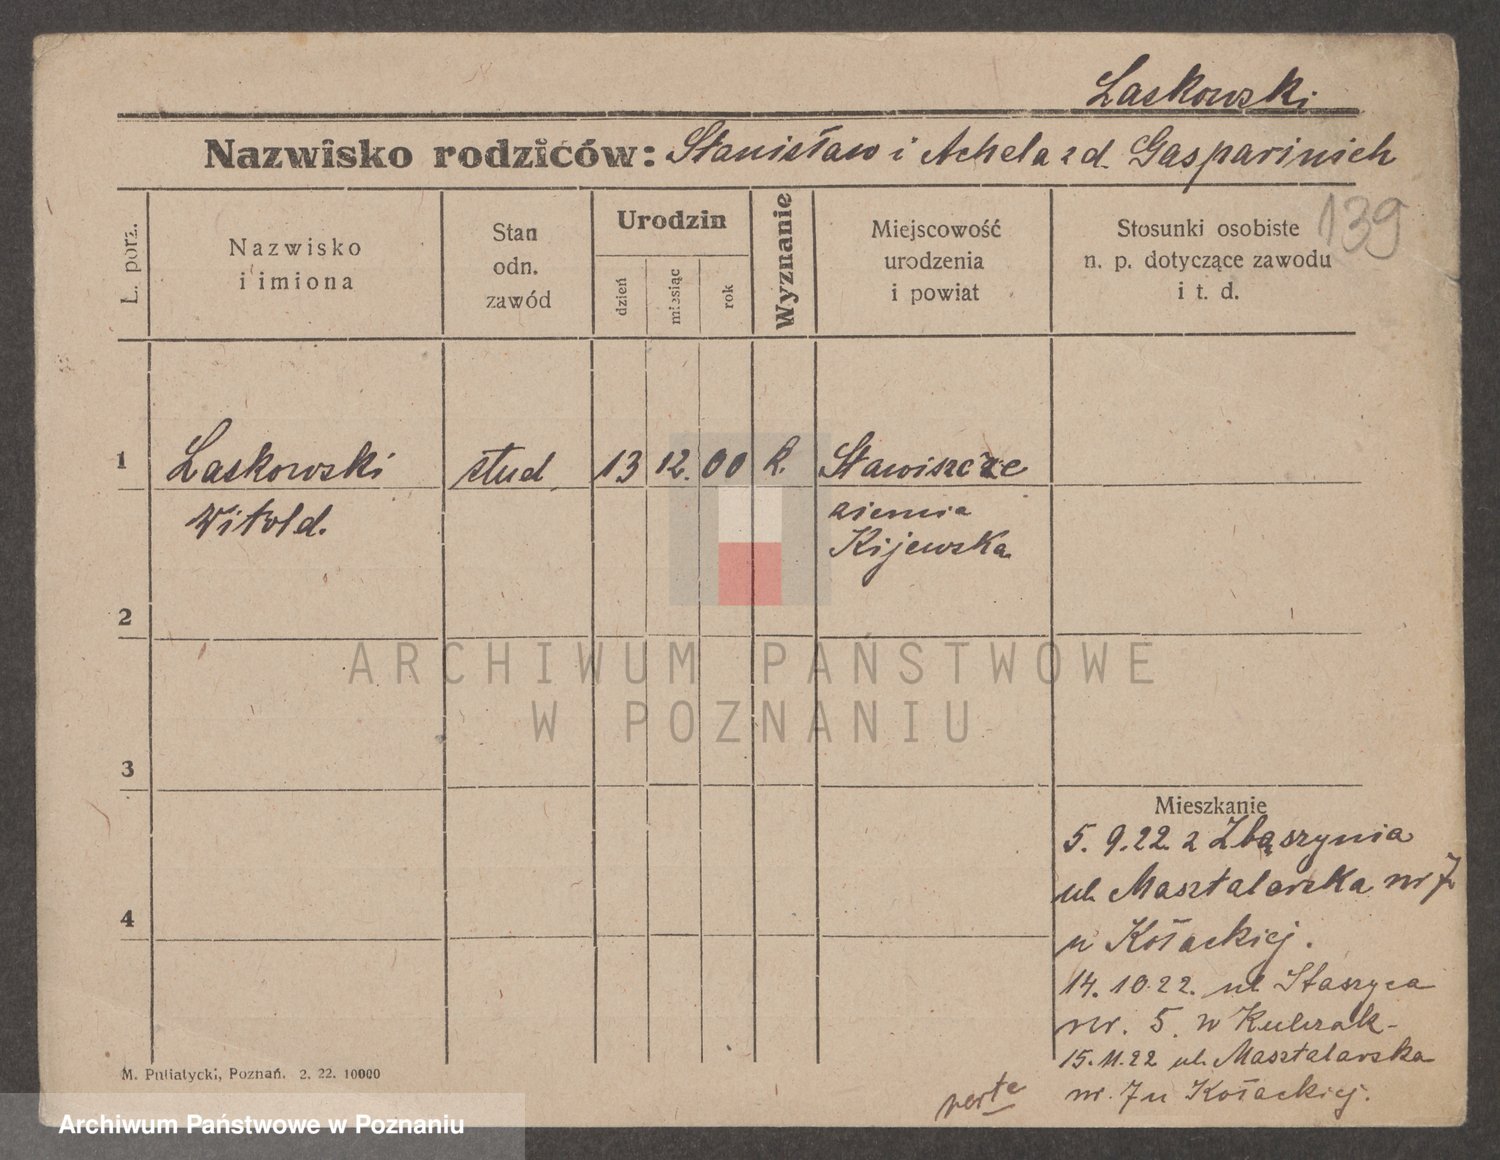 Laskowski
Nazwisko rodziców: Stanisław i Achela z d. Gasparinich
139
L. porz.
Nazwisko
i imiona
Stan
odn.
zawód
Urodzin
dzień
miesiąc
rok
Wyznanie
Miejscowość
urodzenia
i powiat
Stosunki osobiste
n. p. dotyczące zawodu
i t. d.
1 Laskowski stud 13 12. 00 k. Stawiszcze
Witold. ziemia
Kijewska
2
3
4
Mieszkanie
5. 9. 22. z Zbąszynia
ul. Masztalarska nr 7
u Kołackiej.
14. 10. 22. ul Staszyca
nr. 5. u Kubzak-
15. 11. 22 ul. Masztalarska
nr. 7 u Kołackiej.
verte
M. Putiatycki, Poznań. 2. 22. 10000
ARCHIWUM PAŃSTWOWE
W POZNANIU
Archiwum Państwowe w Poznaniu